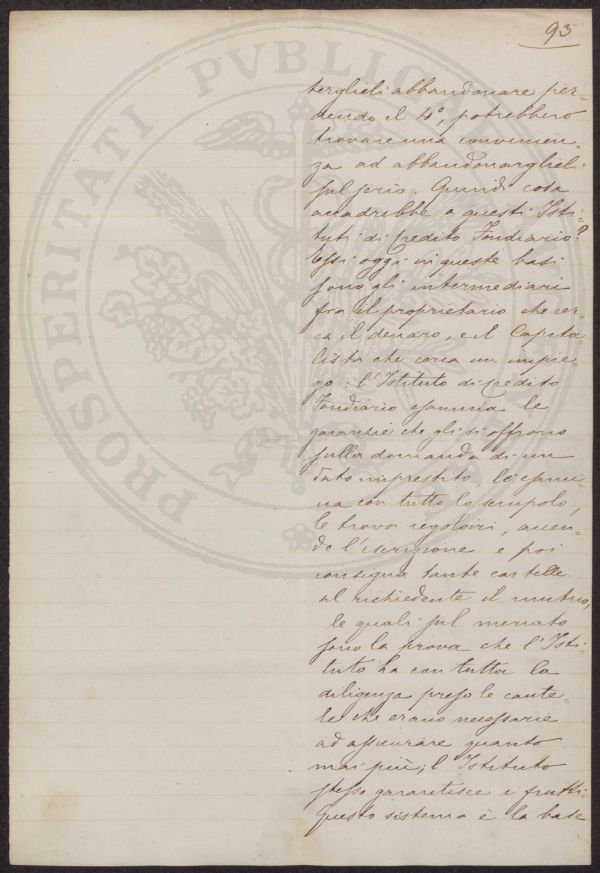 93
terglieli abbandonare per-
dendo il 4°, potrebbero
trovare una convenien-
za ad abbandonarglieli
sul serio. Quindi cosa
accadrebbe a questi Isti-
tuti di Credito Fondiario?
Essi oggi in queste basi
sono gli intermediari
fra il proprietario che cer-
ca il denaro, e il Capita-
lista che cerca un impie-
go: l'Istituto di Credito
Fondiario esamina le
garanzie che gli si offrono
sulla domanda di un
dato imprestito, le esami-
na con tutto lo scrupolo,
le trova regolari, accen-
de l'iscrizione e poi
consegna tante cartelle
al richiedente il mutuo,
le quali sul mercato
sono la prova che l'Isti-
tuto ha con tutta la
diligenza preso le caute-
le che erano necessarie
ad assicurare quanto
mai più; l'Istituto
stesso garantisce i frutti.
Questo sistema è la base
PROSPERITATI PVBLICAE